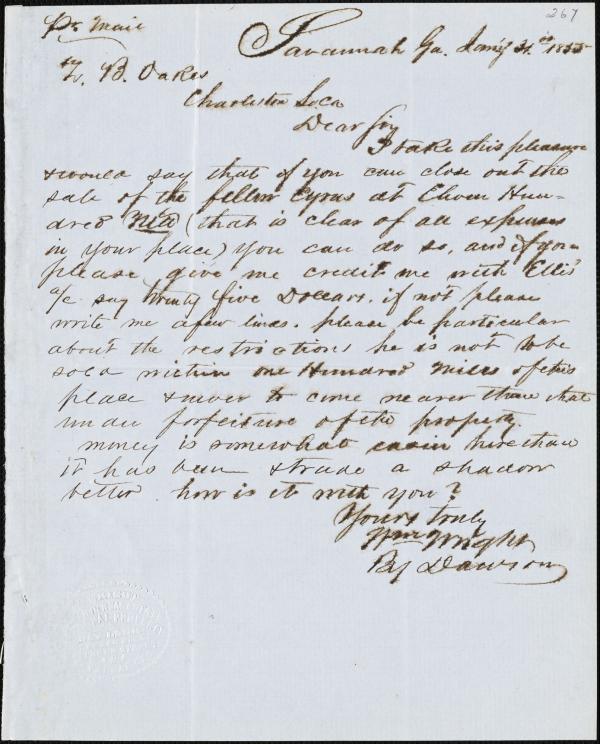 267
Pr Mail
Savannah Ga. Jany 31st 1855
Z. B. Oakes
Charleston So.Ca
Dear Sir
I take this pleasure
& would say that if you can close out the
sale of the fellow Cyrus at Eleven Hun-
dred Nett (that is clear of all expenses
in your place,) you can do so, and if you
please give me credit me with Ellis'
a/c say twenty five Dollars. if not please
write me a few lines. please be particular
about the restrictions he is not to be
sold within one Hundred miles of this
place & never to come nearer than that
under forfeiture of the property.
money is somewhat easier here than
it has been & trade a shadow
better how is it with you?
Yours truly
Wm Wright
By Dawson